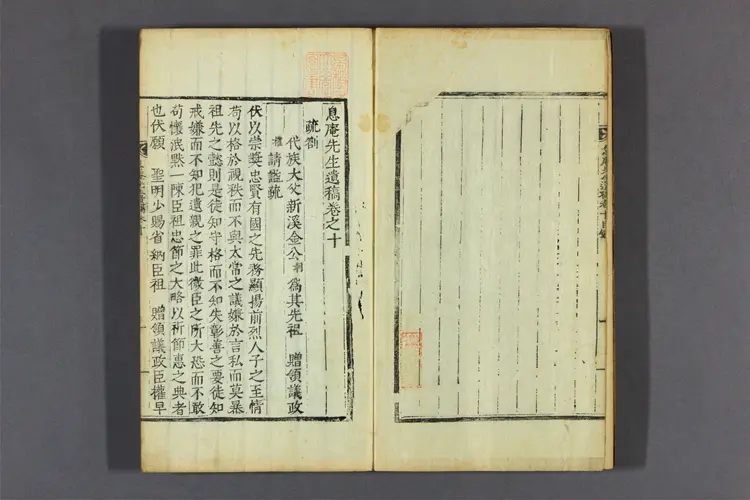 息庵先生遺稿卷十目錄
息庵先生遺稿卷之十
疏箚
代族大父新溪金公 爲其先祖 贈領議政
權 請謚疏
伏以崇奬忠賢有國之先務顯揚前烈人子之至情
苟以格於視秩而不與太常之議嫌於言私而莫暴
祖先之懿則是徒知守格而不知失彰善之要徒知
戒嫌而不知犯遺親之罪此微臣之所大恐而不敢
苟懷泯默一陳臣祖忠節之大略以祈節惠之典者
也伏願 聖明少賜省納臣祖 贈領議政臣權早